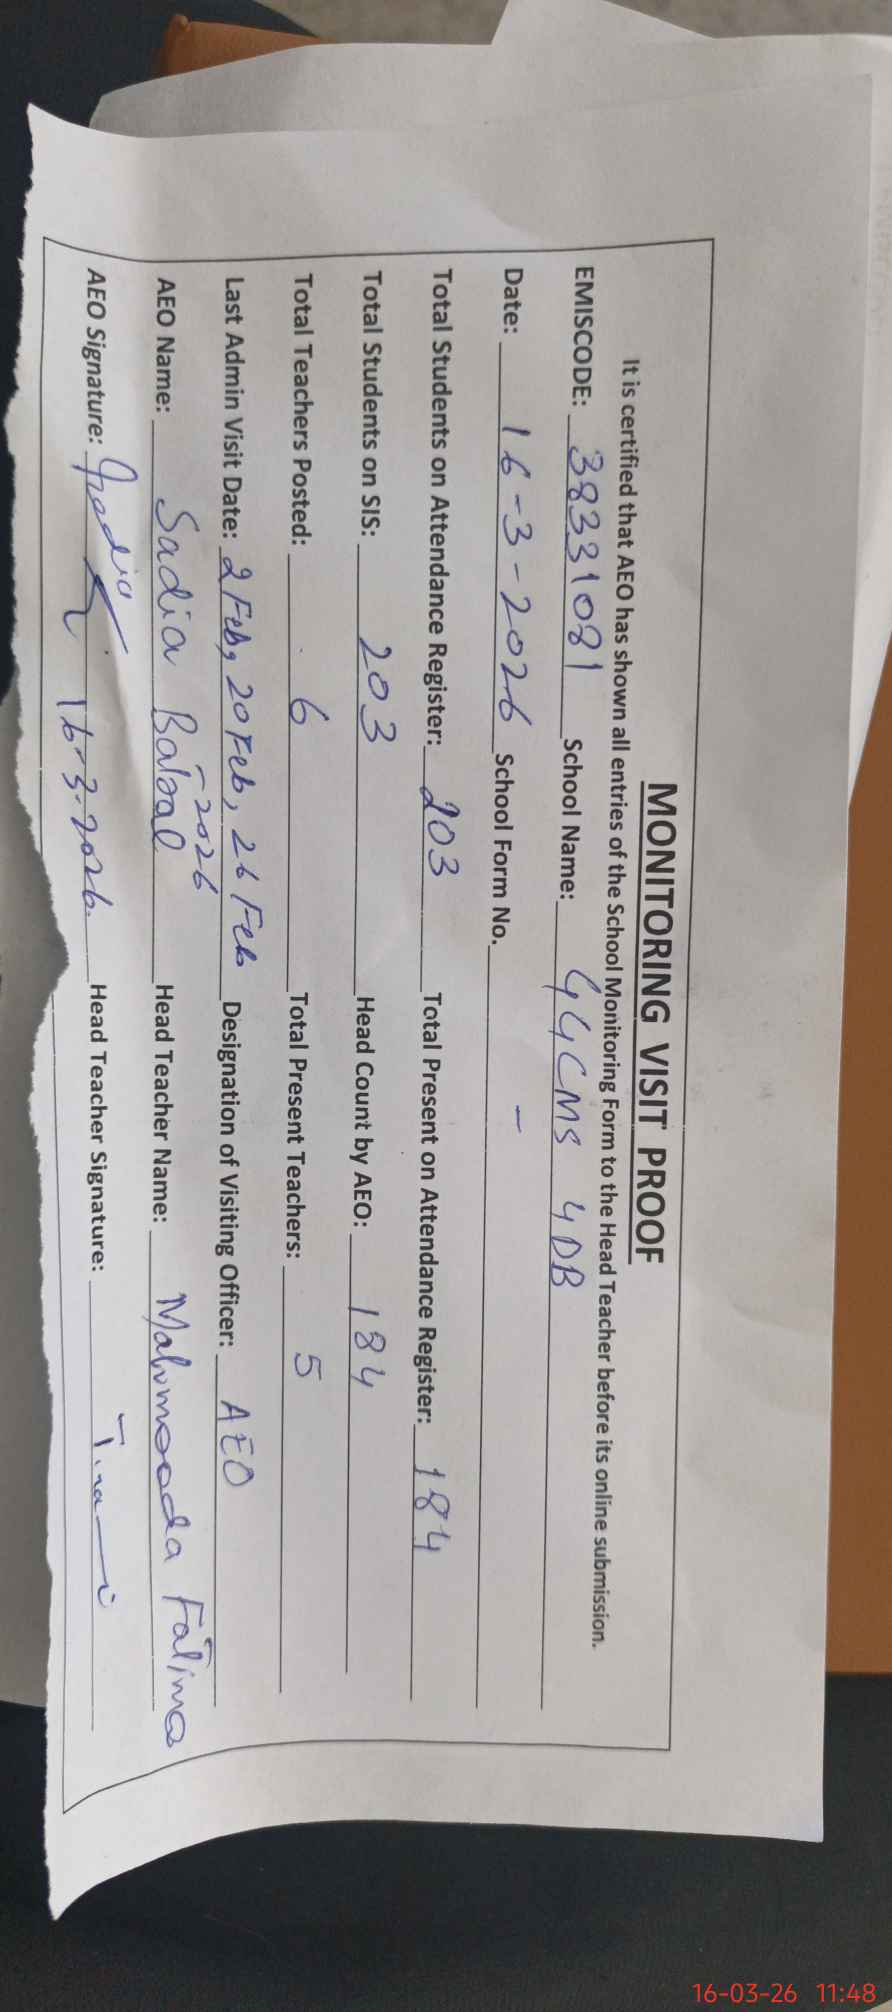 MONITORING VISIT PROOF
It is certified that AEO has shown all entries of the School Monitoring Form to the Head Teacher before its online submission.
EMISCODE: 38331081 School Name: GGCMS 4DB
Date: 16-3-2026 School Form No. -
Total Students on Attendance Register: 203 Total Present on Attendance Register: 184
Total Students on SIS: 203 Head Count by AEO: 184
Total Teachers Posted: 6 Total Present Teachers: 5
Last Admin Visit Date: 2 Feb, 20 Feb, 26 Feb -2026 Designation of Visiting Officer: AEO
AEO Name: Sadia Head Teacher Name: Mahmooda Fatima
AEO Signature: Sadia 16-3-2026. Head Teacher Signature:
16-03-26 11:48